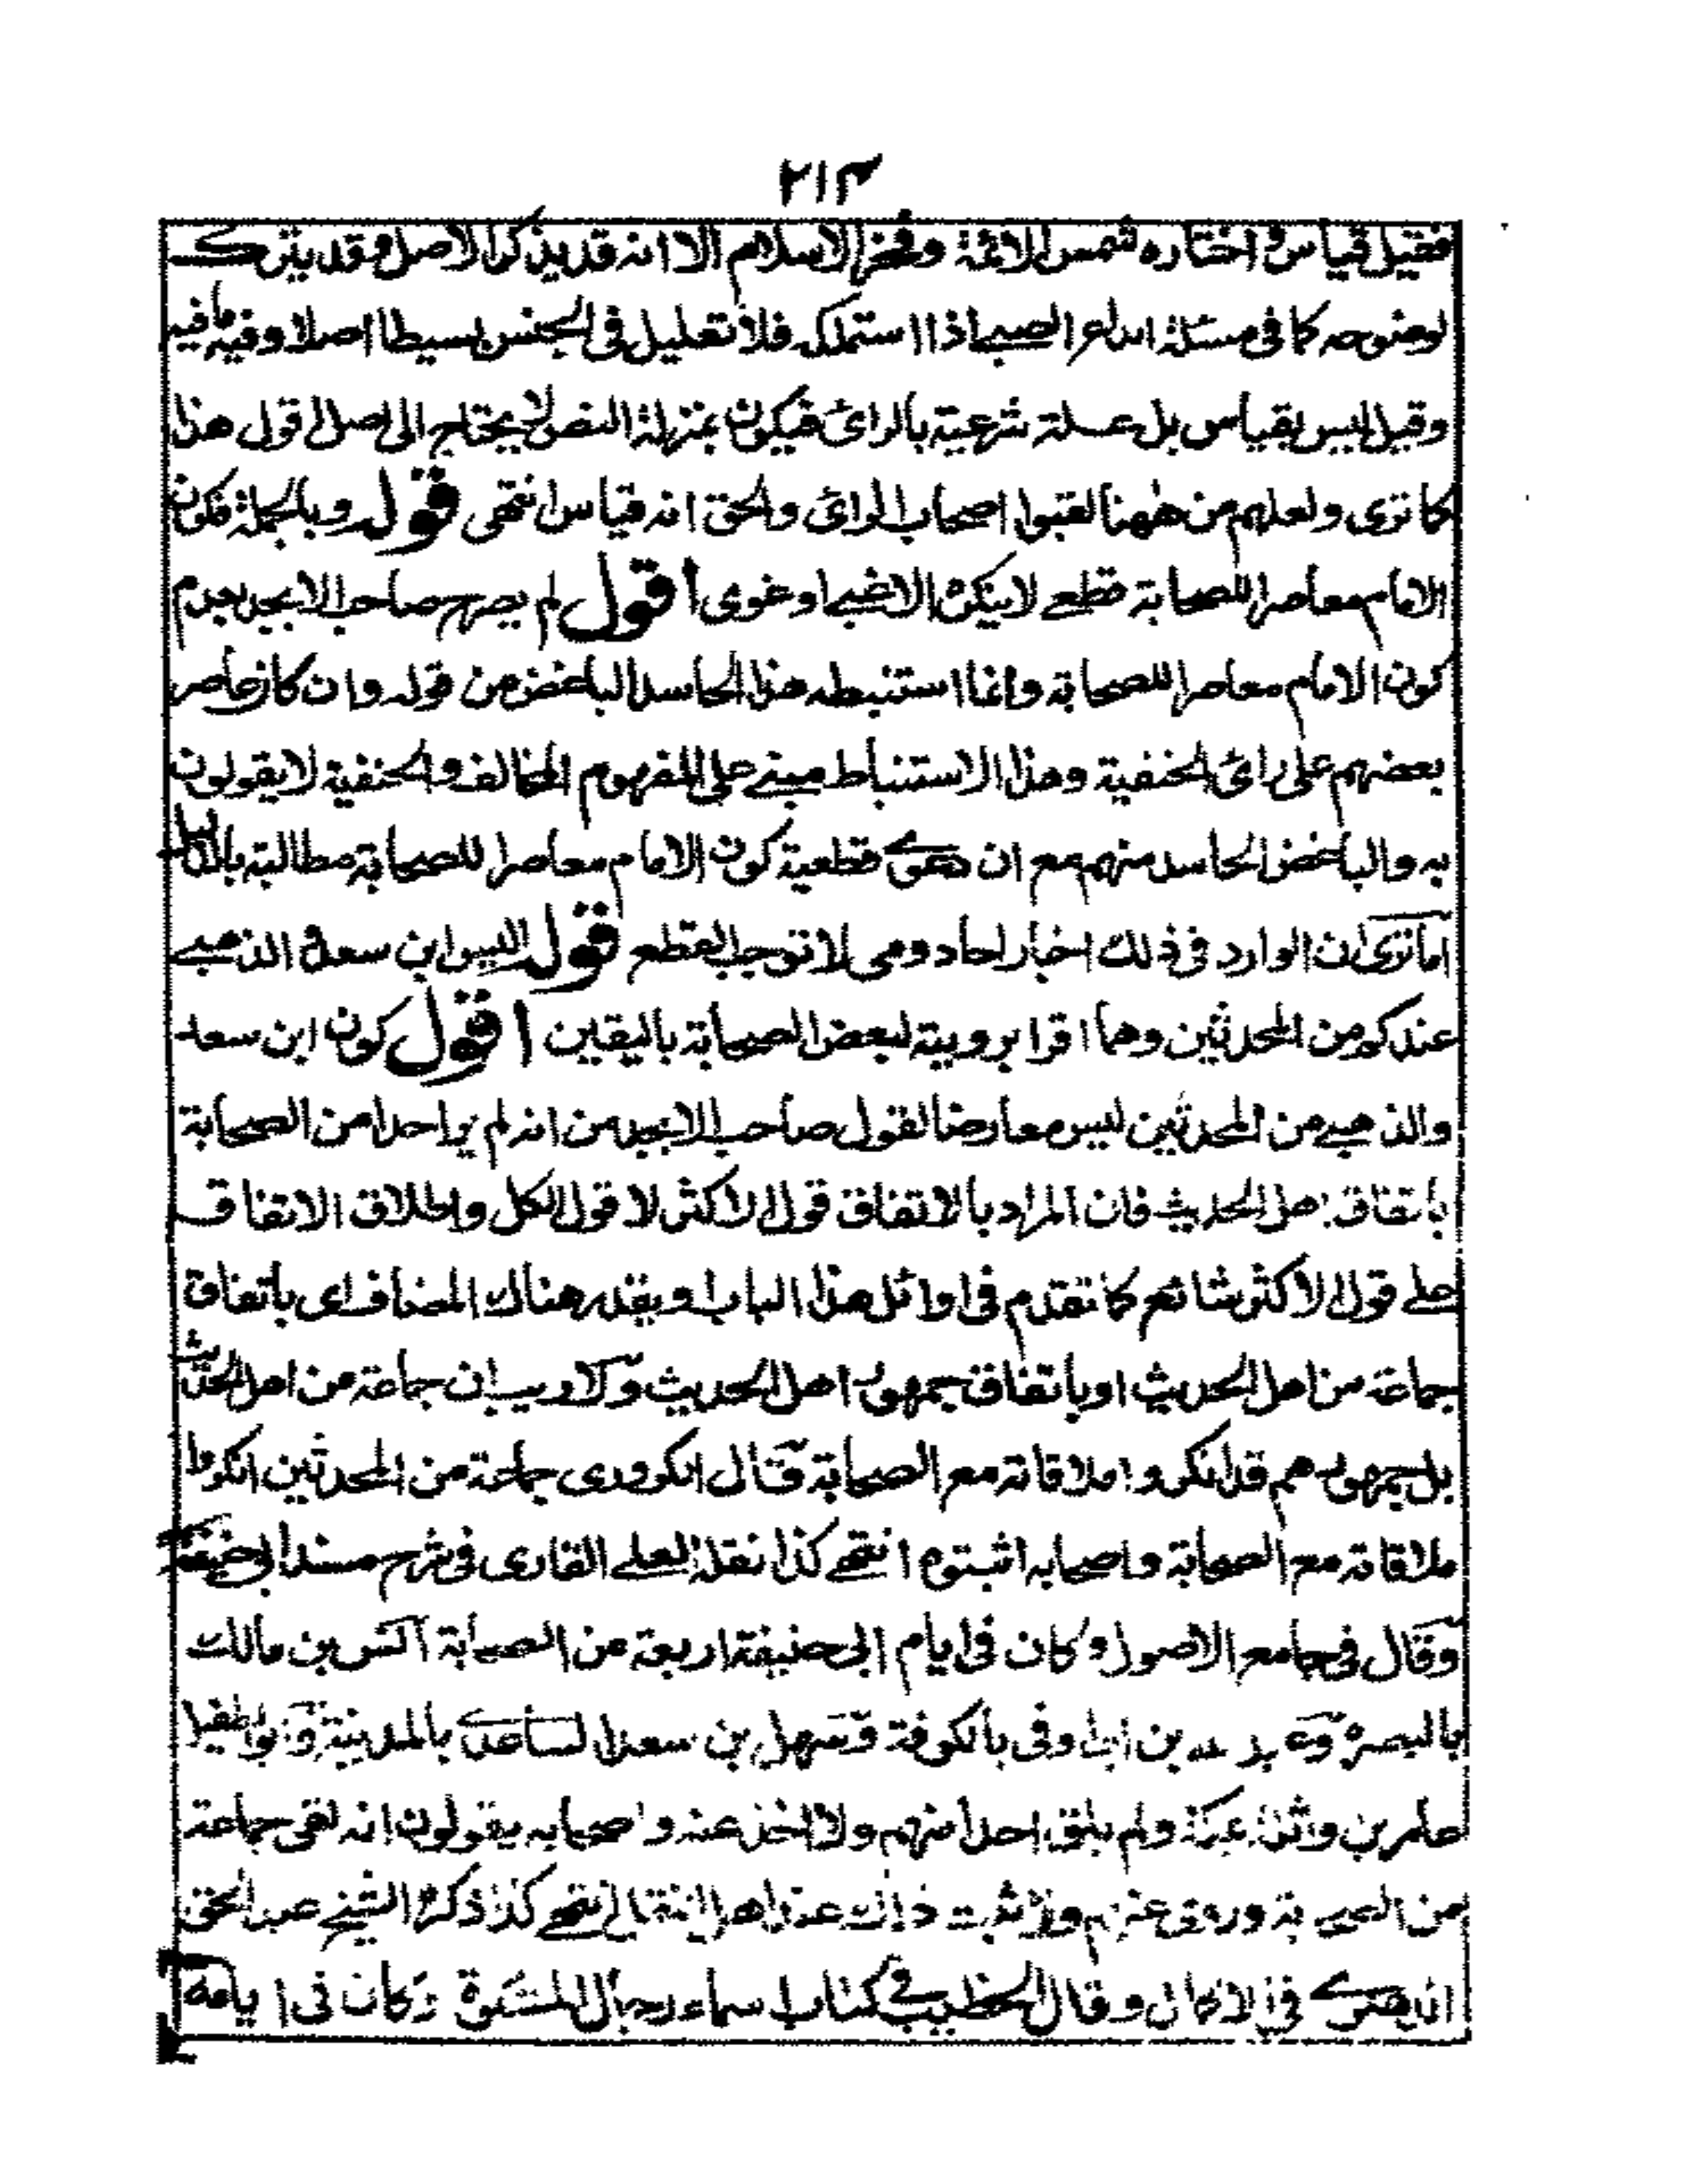 ٢١٣
فقيل قياس واختاره شمس الائمة وفخر الاسلام الا انه قد يذكر الاصل وقد يترك
لوضوحه كما فى مسئلة ايداع الصبى اذا استملكه فلا تعليل فى الجنس بسيطا اصلا وفيه ما فيه
وقيل ليس بقياس بل علة شرعية بالرائ فيكون بمنزلة النص لا يحتاج الى اصل اقول هذا
كما ترى ولعلهم من ههنا لقبوا اصحاب الرائ والحق انه قياس انتهى قوله وبالجملة فكون
الامام معاصرا للصحابة قطعى لا ينكره الا غبى او غوى اقول لم يصرح صاحب الابجد بعدم
كون الامام معاصرا للصحابة وانما استنبطه هذا الحاسد الباغض من قوله وان كان عاصر
بعضهم على رائ الحنفية وهذا الاستنباط مبنى على المفهوم المخالف والحنفية لا يقولون
به والباغض الحاسد منهم مع ان دعوى قطعية كون الامام معاصرا للصحابة مطالبة بالدليل
اما ترى ان الوارد فى ذلك اخبار احاد وهى لا توجب القطع قوله اليس ابن سعد والذهبى
عندكم من المحدثين وهما اقرا برويته لبعض الصحابة باليقين اقول كون ابن سعد
والذهبى من المحدثين ليس معارضا لقول صاحب الابجد من انه لم ير احدا من الصحابة
باتفاق اهل الحديث فان المراد بالاتفاق قول الاكثر لا قول الكل واطلاق الاتفاق
على قول الاكثر شائع كما تقدم فى اوائل هذا الباب او يقدر هناك المضاف اى باتفاق
جماعة من اهل الحديث او باتفاق جمهور اهل الحديث ولا ريب ان جماعة من اهل الحديث
بل جمهورهم قد انكروا ملاقاته مع الصحابة قال الكردرى جماعة من المحدثين انكروا
ملاقاته مع الصحابة واصحابه اثبتوه انتهى كذا نقله العلى القارى فى شرح مسند ابى حنيفة
وقال فى جامع الاصول وكان فى ايام ابى حنيفة اربعة من الصحابة انس بن مالك
بالبصرة وعبد الله بن ابى اوفى بالكوفة وسهل بن سعد الساعدى بالمدينة وابو الطفيل
عامر بن واثلة بمكة ولم يلق احدا منهم ولا اخذ عنه واصحابه يقولون انه لقى جماعة
من الصحابة وروى عنهم ولا يثبت ذلك عند اهل النقل انتهى كذا ذكره الشيخ عبد الحق
الدهلوى فى الاكمال وقال الخطيب فى كتاب اسماء رجال المشكوة وكان فى ايامه